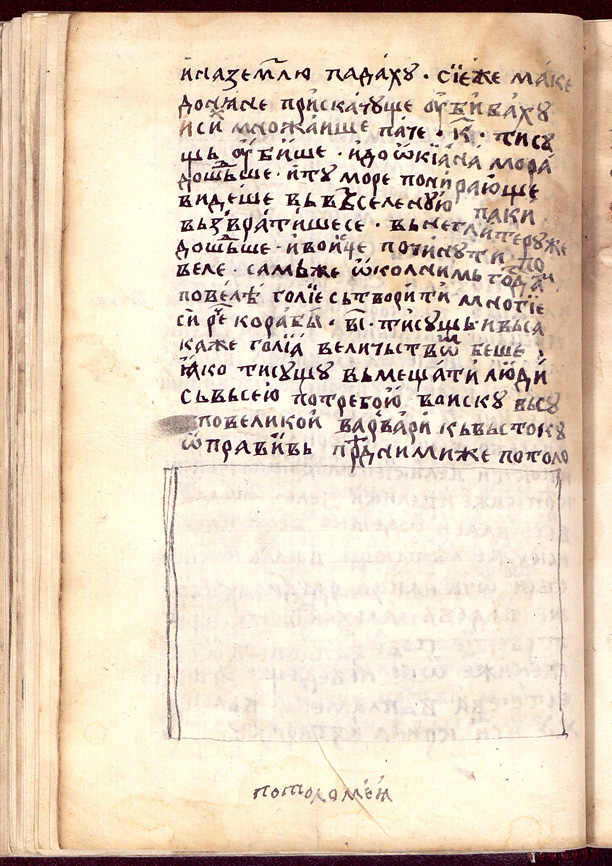 и на землю падахꙋ · сїеже маке
донѧне прискачуще ѹбивахꙋ
и си множаише паче · к҃ · тисꙋ
щь ѹбише · идо ѡкїана мора
дошьше · и тꙋ море понирающе
видеше вьвьселенꙋю паки
вьзвратишесе · вьнеглитерꙋже
дошьше · и вои же починꙋти по
веле · самьже ѡколнимь
повелѣ голїе сьтворити многїе
си рⷱ҇е корабы · в҃і · тисꙋщьи выса
каже голїа величьствѡⷨ беше ,
ꙗко тисꙋщꙋ вьмещати люди
сьвьсею потребою воискꙋ всꙋ
повеликои варвари кьвыстокꙋ
ѡправивь прⷣ нимиже потоло
потоломеѧ